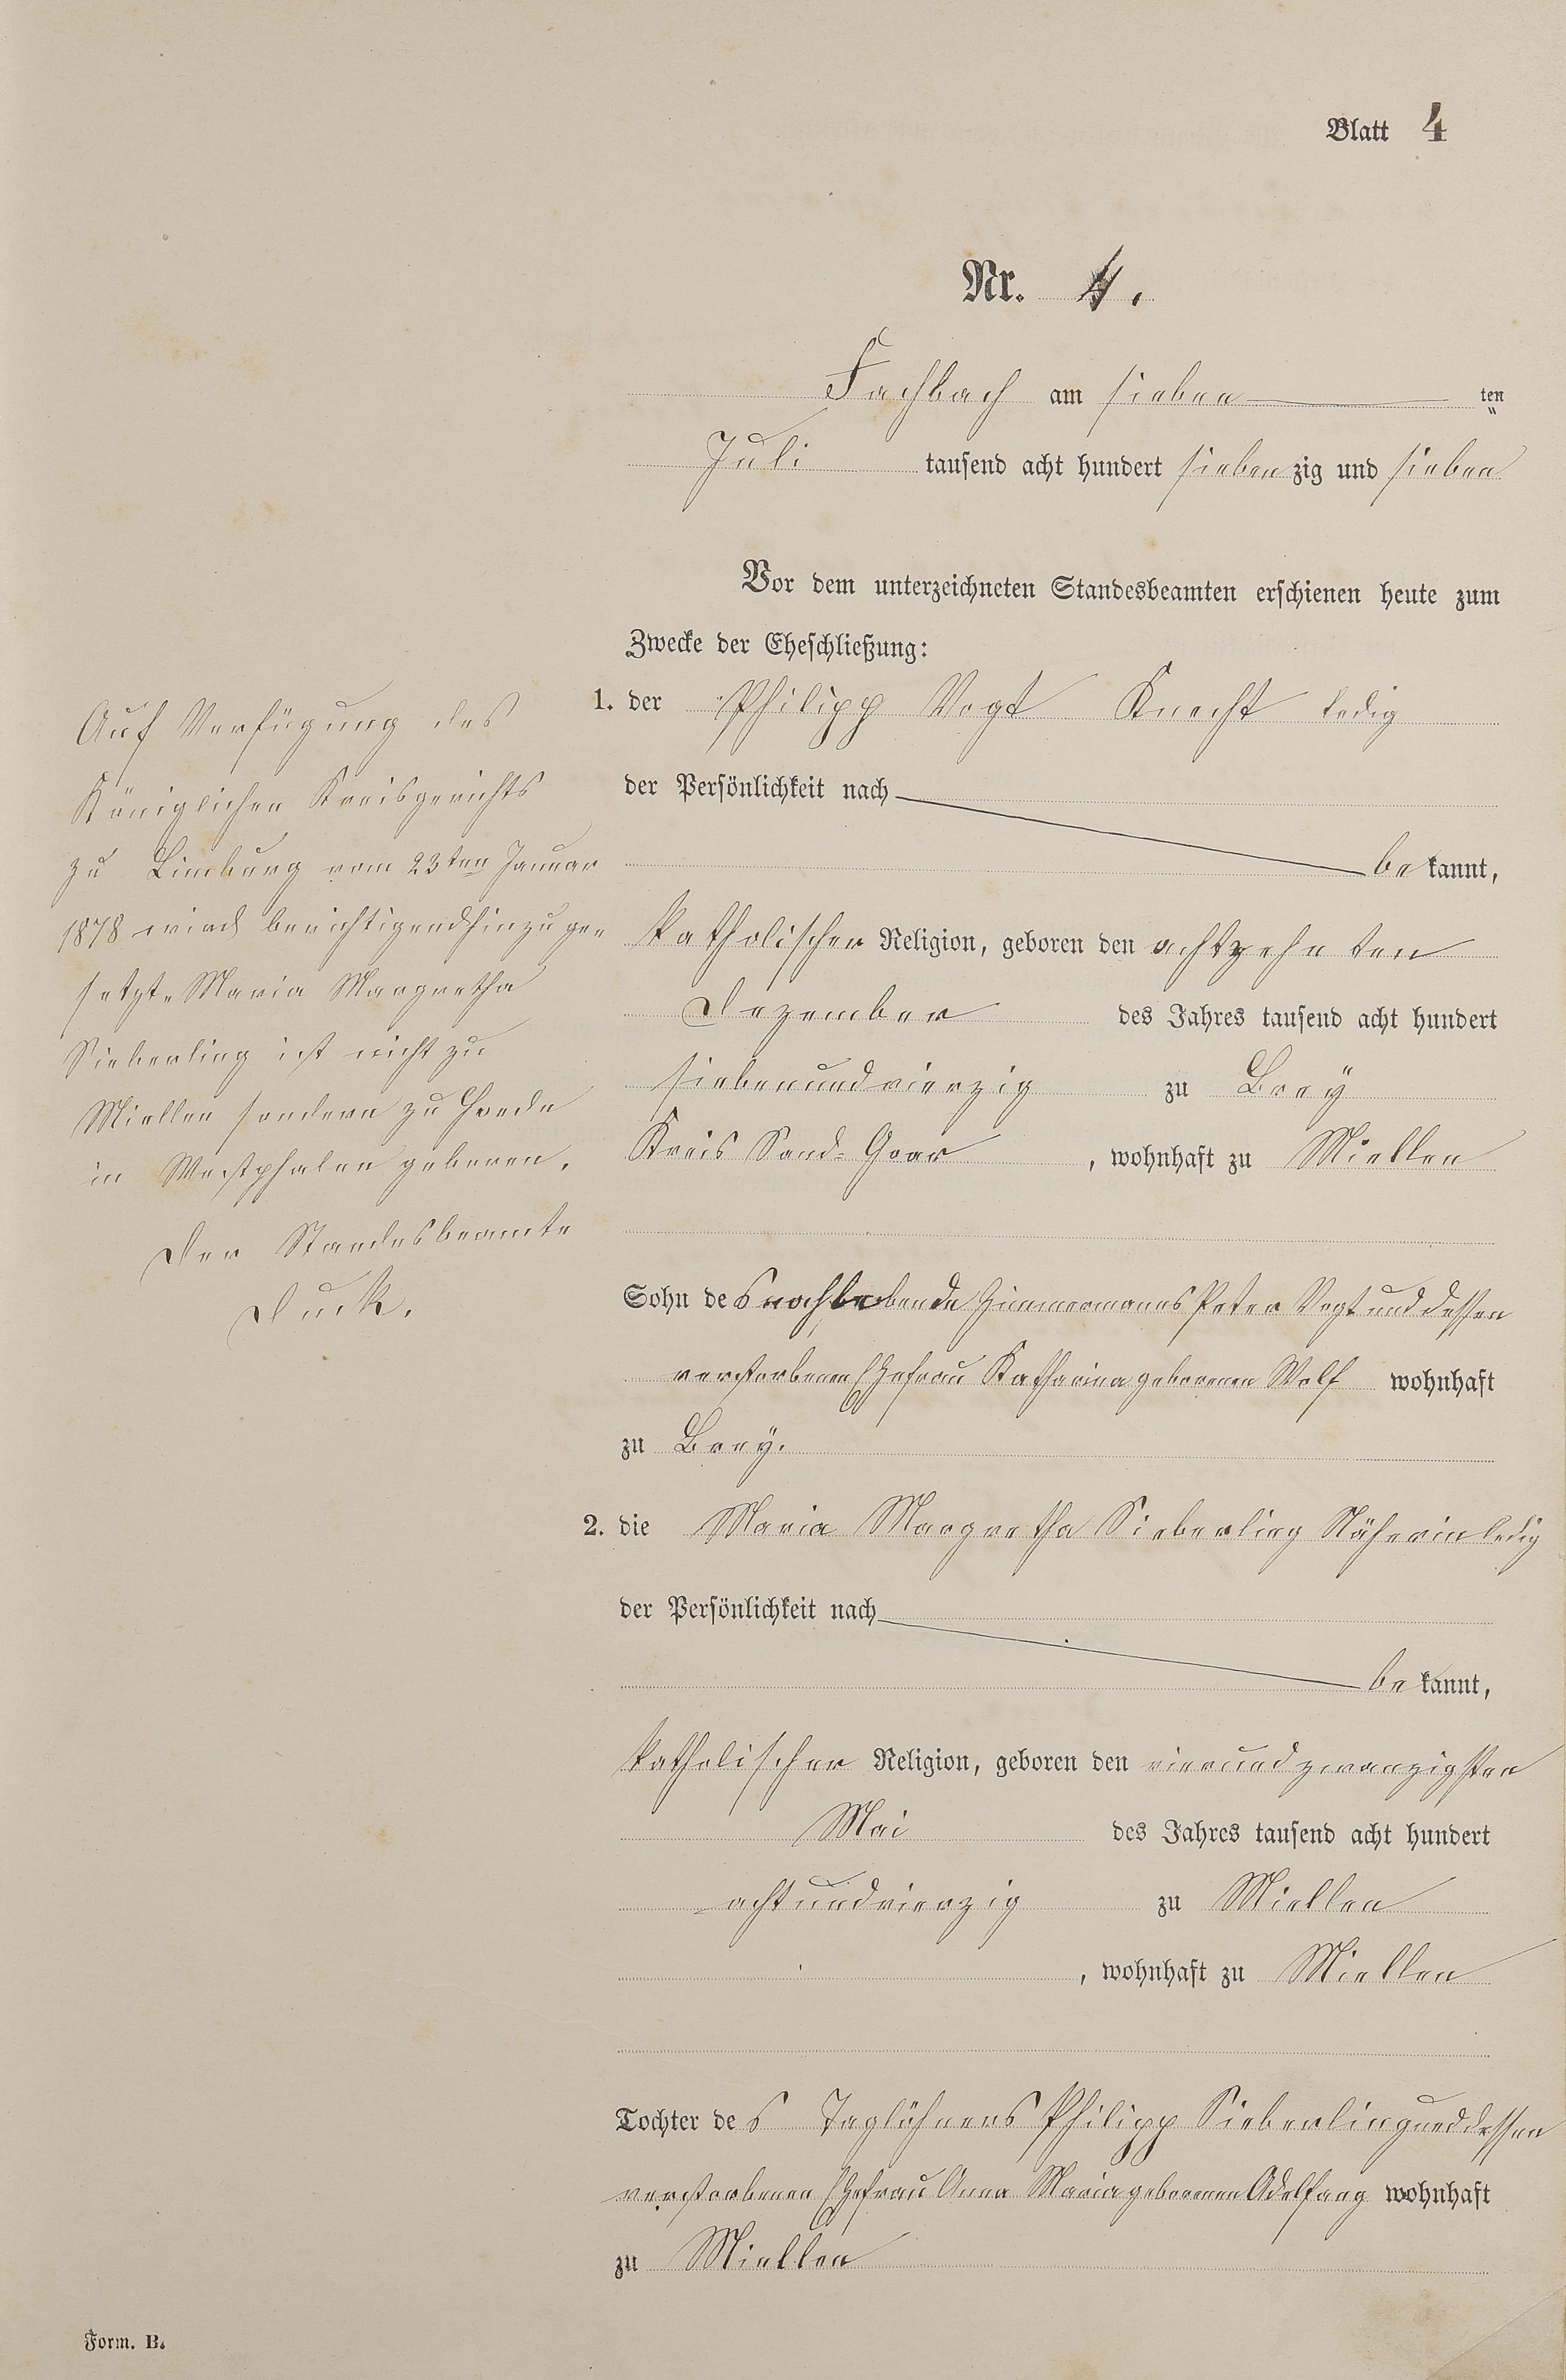 Blatt 4
Nr. 4.
Fachbach am sieben ten
Juli tausend acht hundert siebenzig und sieben
Vor dem unterzeichneten Standesbeamten erschienen heute zum
Zwecke der Eheschließung:
1. der Philipp Vogt Knecht ledig
der Persönlichkeit nach
bekannt,
katholischer Religion, geboren den achtzehnten
Dezember des Jahres tausend acht hundert
siebenundvierzig zu Breÿ
Kreis Sand-Goar, wohnhaft zu Miellen
Sohn des nachlebende Zimmermanns Peter Vogt und dessen
verstorbenen Ehefrau Katharina geborenen Wolf wohnhaft
zu Breÿ.
2. die Maria Margretha Sieberling Näherin ledig
der Persönlichkeit nach
bekannt,
katholischer Religion, geboren den vierundzwanzigsten
Mai des Jahres tausend acht hundert
achtundvierzig zu Miellen
, wohnhaft zu Miellen
Tochter des Taglöhners Philipp Sieberling und dessen
verstorbenen Ehefrau Anna Maria geborenen Adelfang wohnhaft
zu Miellen
Auf Verfügung des
Königlichen Kreisgerichts
zu Limburg vom 23ten Januar
1878 wird berichtigend hinzuge-
setzt. Maria Margretha
Sieberling ist nicht zu
Miellen sondern zu
in Westphalen geboren.
Der Standesbeamte
Duck.
Form. B.